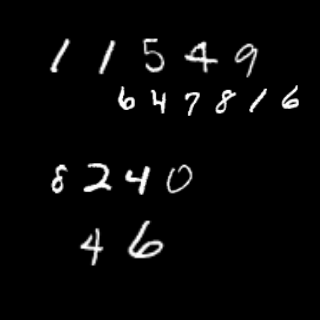 11549
647816
8240
46